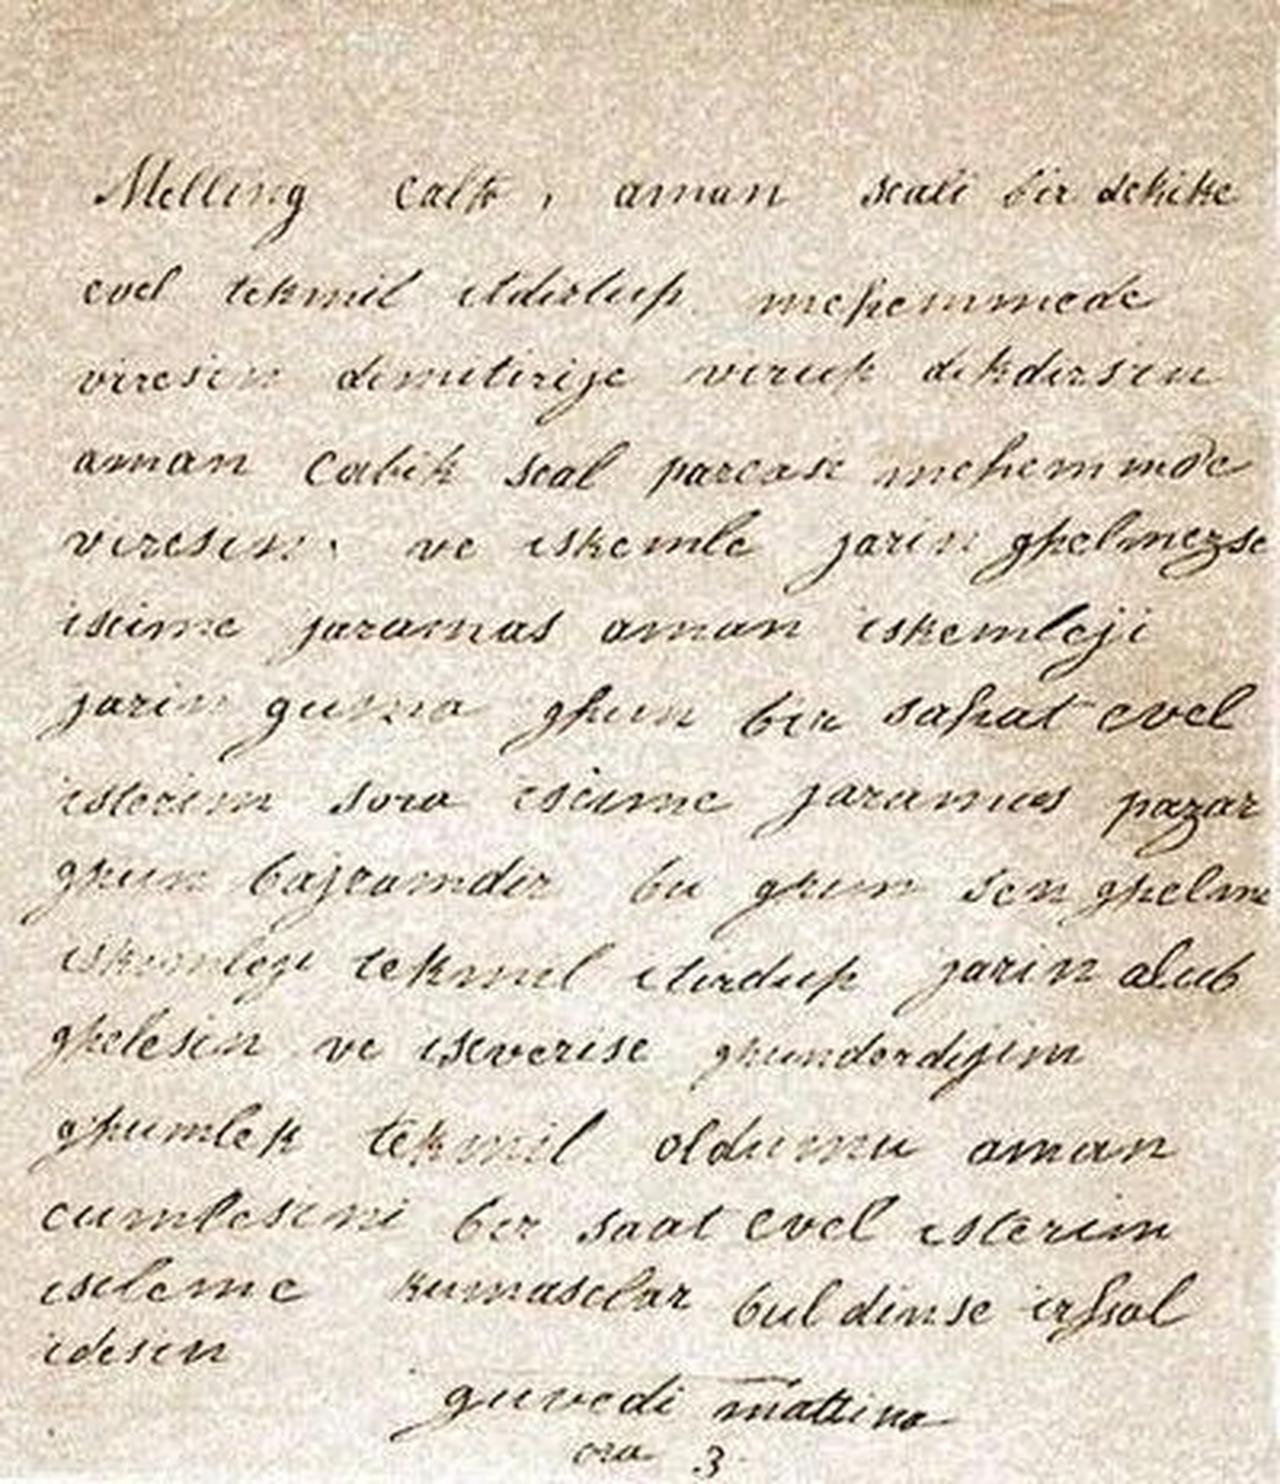 Melling calfa, aman scali bir dekike
evel tekmil itdirtup mehemmede
viresin dimitirije virup dikdirsin
aman cabik scal parcasi mehemmede
viresin. ve iskemle jarin ghelmezse
iscime jaramas aman iskemleji
jarin guma ghun bir sahat evel
isterim sora iscime jaramas pazar
ghun bajramdir bu ghun sen ghelme
iskemleji tekmil itirdup jarin alub
ghelesin ve iseverise ghunderdijim
ghumlek tekmil oldumu aman
cumlesini bir saat evel isterim
iscleme kumasclar buldinse irssal
idesin
guvedi mattina
ora 3.